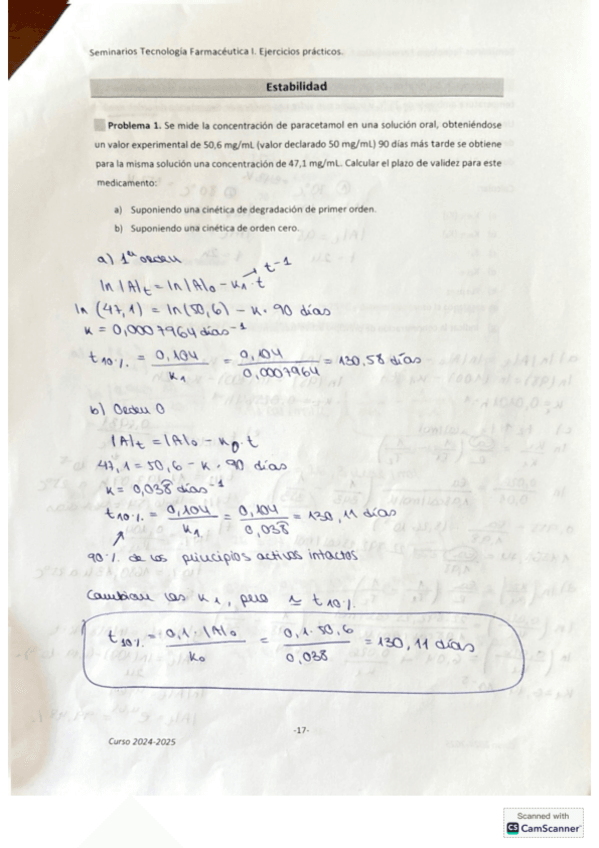 Seminarios Tecnología Farmacéutica I. Ejercicios prácticos.
Estabilidad
Problema 1. Se mide la concentración de paracetamol en una solución oral, obteniéndose
un valor experimental de 50,6 mg/mL (valor declarado 50 mg/mL) 90 días más tarde se obtiene
para la misma solución una concentración de 47,1 mg/mL. Calcular el plazo de validez para este
medicamento:
a) Suponiendo una cinética de degradación de primer orden.
b) Suponiendo una cinética de orden cero.
a) 1er orden
ln |A|t = ln |A|o - K1 · t → t-1
ln (47,1) = ln (50,6) - K · 90 días
K = 0,0007964 días-1
t10% = 0,104 / K1 = 0,104 / 0,0007964 = 130,58 días
b) Orden 0
|A|t = |A|o - K0 · t
47,1 = 50,6 - K · 90 días
K = 0,038 días-1
t10% = 0,104 / K1 = 0,104 / 0,038 = 130,11 días
90% de los principios activos intactos
Cambian las K1, pero ≃ t10%
t10% = 0,1 · |A|o / K0 = 0,1 · 50,6 / 0,038 = 130,11 días
-17-
Curso 2024-2025
Scanned with
CS CamScanner